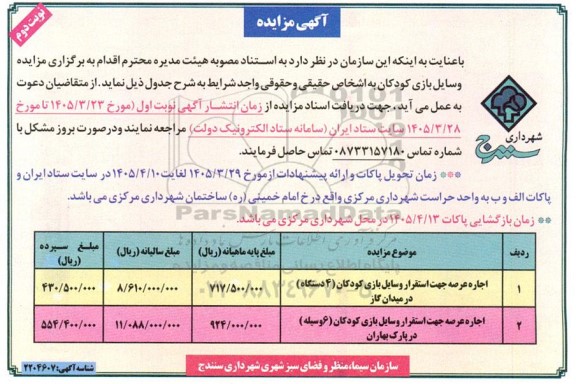 آگهی مزایده
نوبت دوم
باعنایت به اینکه این سازمان در نظر دارد به استناد مصوبه هیئت مدیره محترم اقدام به برگزاری مزایده
وسایل بازی کودکان به اشخاص حقیقی وحقوقی واجد شرایط به شرح جدول ذیل نماید. از متقاضیان دعوت
به عمل می آید ، جهت دریافت اسناد مزایده از زمان انتشار آگهی نوبت اول (مورخ ۱۴۰۵/۳/۲۳ تا مورخ
۱۴۰۵/۳/۲۸ سایت ستاد ایران (سامانه ستاد الکترونیک دولت) مراجعه نمایند و درصورت بروز مشکل با
شماره تماس ۰۸۷۳۳۱۵۷۱۸۰ تماس حاصل فرمایند.
شهرداری سنندج
** زمان تحویل پاکات و ارائه پیشنهادات از مورخ ۱۴۰۵/۳/۲۹ لغایت ۱۴۰۵/۴/۱۰ در سایت ستاد ایران و
پاکات الف و ب به واحد حراست شهرداری مرکزی واقع در خ امام خمینی (ره) ساختمان شهرداری مرکزی می باشد.
** زمان بازگشایی پاکات ۱۴۰۵/۴/۱۳ در محل شهرداری مرکزی می باشد.
ParsNamadData
پایگاه اطلاع رسانی مناقصه و مزایده
ردیف موضوع مزایده مبلغ پایه ماهیانه (ریال) مبلغ سالیانه (ریال) مبلغ سپرده (ریال)
۱ اجاره عرصه جهت استقرار وسایل بازی کودکان (۴ دستگاه) در میدان گاز ۷۱۷/۵۰۰/۰۰۰ ۸/۶۱۰/۰۰۰/۰۰۰ ۴۳۰/۵۰۰/۰۰۰
۲ اجاره عرصه جهت استقرار وسایل بازی کودکان (۶ وسیله) در پارک بهاران ۹۲۴/۰۰۰/۰۰۰ ۱۱/۰۸۸/۰۰۰/۰۰۰ ۵۵۴/۴۰۰/۰۰۰
سازمان سیما، منظر و فضای سبز شهری شهرداری سنندج
شناسه آگهی: ۲۲۰۴۶۰۷